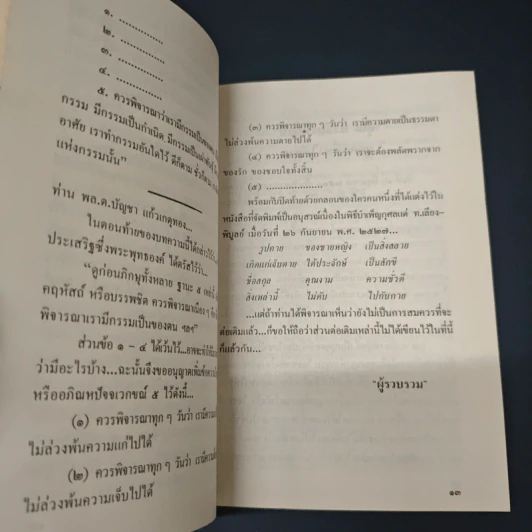 ๑. ..............
๒. ..............
๓. ..............
๔. ..............
๕. ควรพิจารณาว่าเรามีกรรมเป็นของตน
กรรม มีกรรมเป็นกำเนิด มีกรรมเป็นเผ่าพันธุ์
อาศัย เราทำกรรมอันใดไว้ ดีก็ตาม ชั่วก็ตาม
แห่งกรรมนั้น”
ท่าน พล.ต.บัญชา แก้วเกตุทอง
ในตอนท้ายของบทความนี้ได้กล่าวไว้
ประเสริฐซึ่งพระพุทธองค์ ได้ตรัสไว้ว่า...
“ดูก่อนภิกษุทั้งหลาย ฐานะ ๕ เหล่านี้
คฤหัสถ์ หรือบรรพชิต ควรพิจารณาเนืองๆ
พิจารณาเรามีกรรมเป็นของตน ฯลฯ”
ส่วนข้อ ๑ – ๔ ได้เว้นไว้...อาจจะทำให้
ว่ามีอะไรบ้าง...ฉะนั้นจึงขออนุญาตเพิ่มข้อความ
หรืออภิณหปัจจเวกขณ์ ๕ ไว้ดังนี้...
(๑) ควรพิจารณาทุก ๆ วันว่า เรามีความแก่
ไม่ล่วงพ้นความแก่ไปได้
(๒) ควรพิจารณาทุก ๆ วันว่า เรามีความเจ็บ
ไม่ล่วงพ้นความเจ็บไปได้
(๓) ควรพิจารณาทุก ๆ วันว่า เรามีความตายเป็นธรรมดา
ไม่ล่วงพ้นความตายไปได้
(๔) ควรพิจารณาทุก ๆ วันว่า เราจะต้องพลัดพรากจาก
ของรัก ของชอบใจทั้งสิ้น
(๕) .....................
พร้อมกับปิดท้ายด้วยกลอนของใครคนหนึ่งที่ได้แต่งไว้ใน
หนังสือที่จัดพิมพ์เป็นอนุสรณ์เนื่องในพิธีบำเพ็ญกุศลแด่ ท.เลียง–
พิบูลย์ เมื่อวันที่ ๒๖ กันยายน พ.ศ. ๒๕๒๗...
รูปตาย ของชายหญิง เป็นสิ่งสลาย
เกิดแก่เจ็บตาย ได้ประจักษ์ เป็นสักขี
ชื่อสกุล คุณงาม ความชั่วดี
สิ่งเหล่านี้ ไม่ดับ ไปกับกาย
...แต่ถ้าท่านได้พิจารณาเห็นว่ายังไม่เป็นการสมควรที่จะ
ต่อเติมแล้ว...ก็ขอให้ถือว่าส่วนต่อเติมเหล่านี้ไม่ได้เขียนไว้ในที่นี้
ก็แล้วกัน...
“ผู้รวบรวม”
๑๓